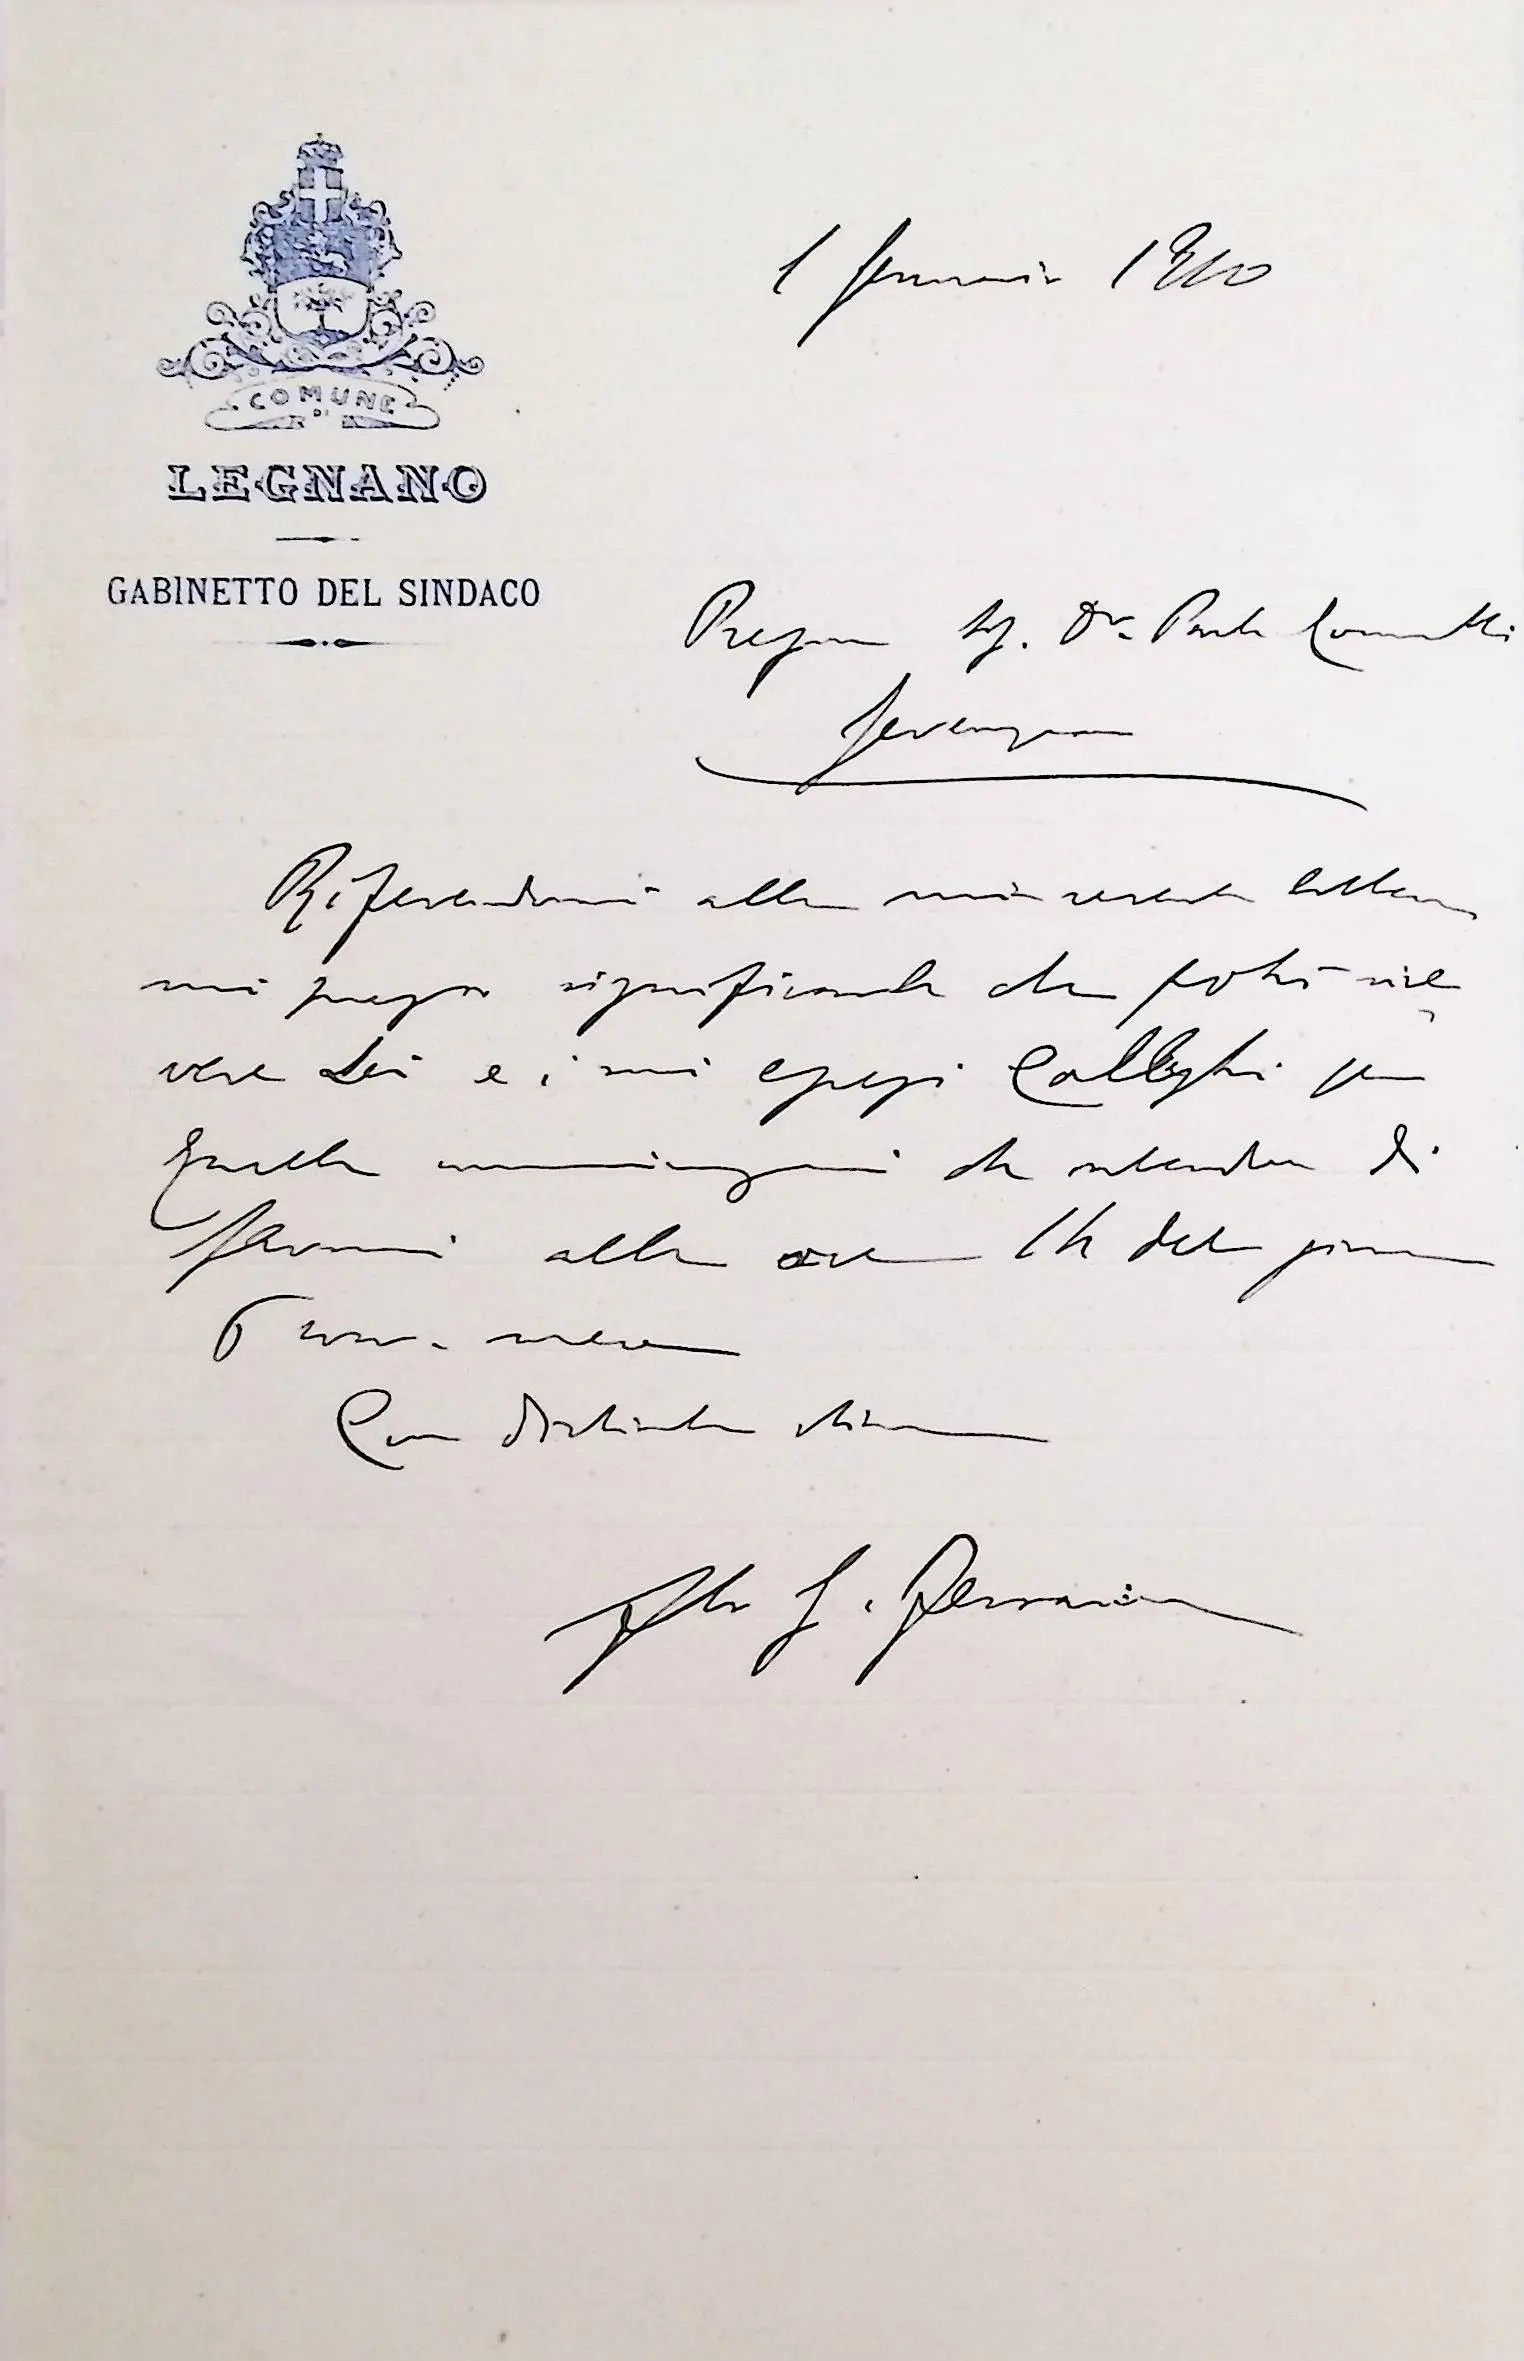 COMUNE
DI
LEGNANO
GABINETTO DEL SINDACO
1 Gennaio 1910
Pregmo Sig. Dr. Paolo
Riferendomi alla mia recente lettera
mi pregio significarle che potrò rice
vere Lei e i suoi egregi Colleghi per
quelle comunicazioni che intendono di
farmi alle ore 14 del giorno
6 corr. mese
Con distinta stima